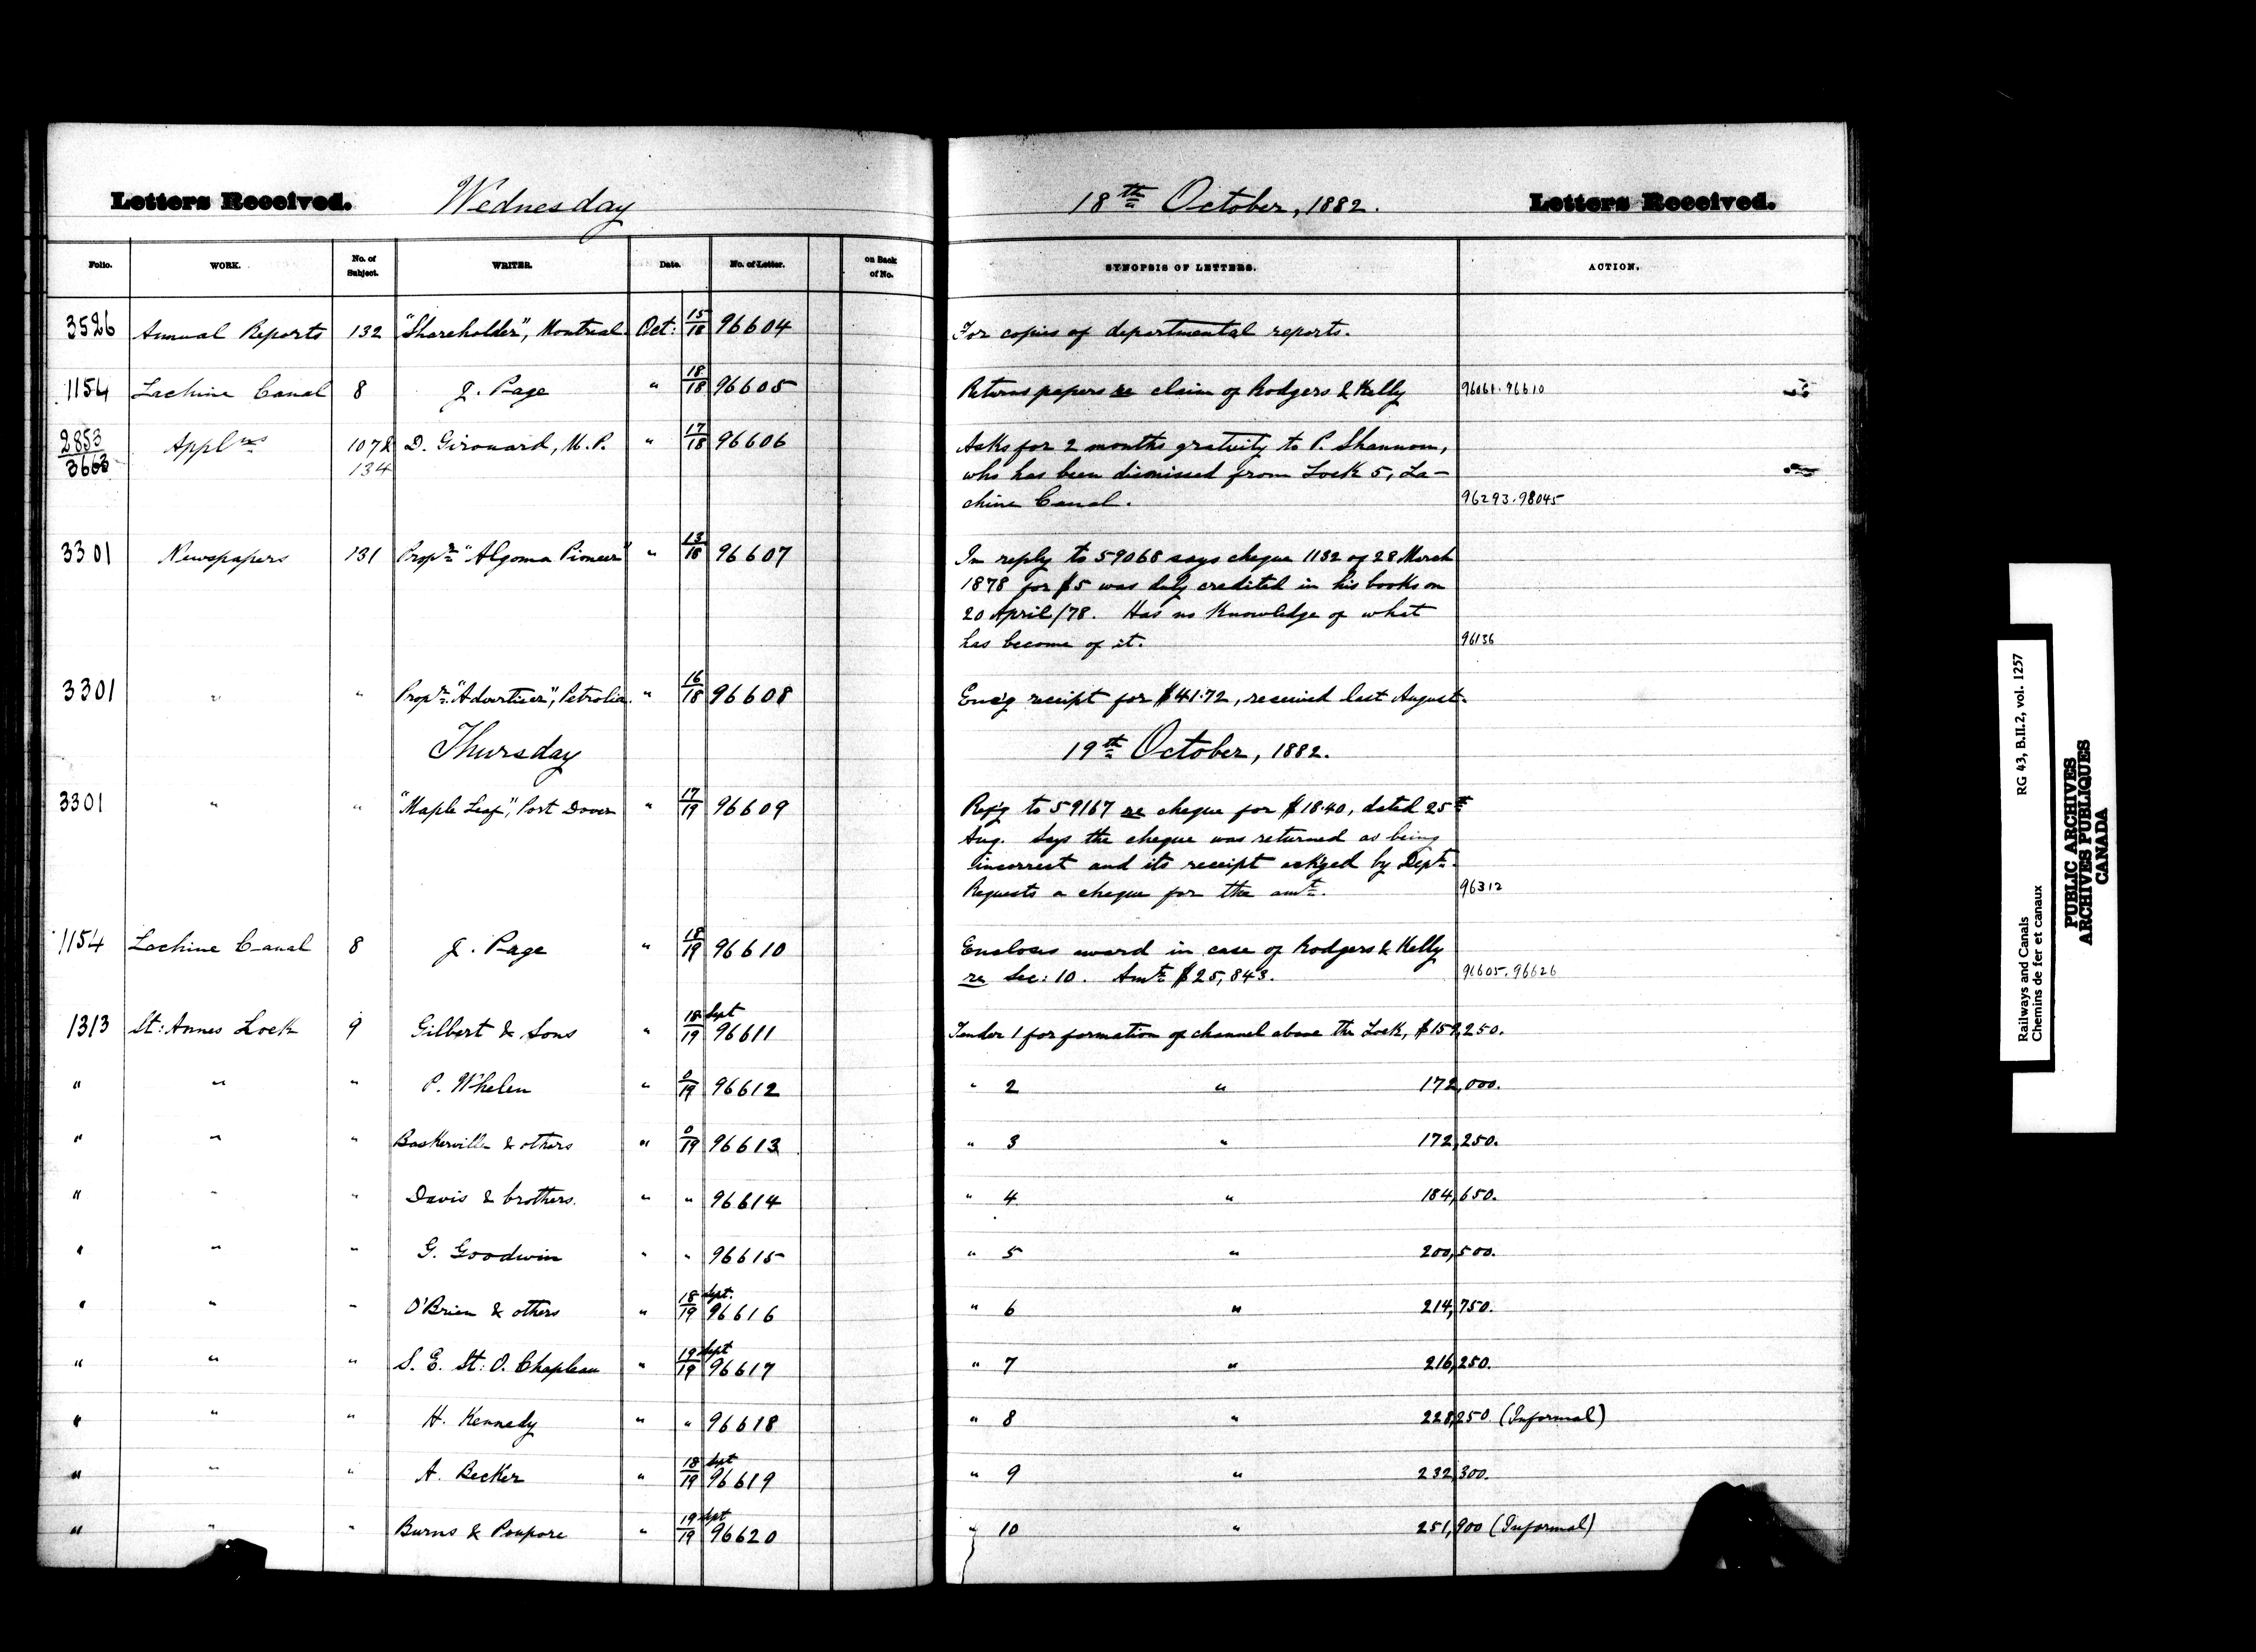 Letters Received. Wednesday 18th October, 1882. Letters Received.
Folio. WORK. No. of Subject. WRITER. Date. No. of Letter. on Back of No. SYNOPSIS OF LETTERS. ACTION.
3526 Annual Reports 132 "Shareholder", Montreal. Oct: 15/18 96604 For copies of departmental reports.
1154 Lachine Canal 8 J. Page " 18/18 96605 Returns papers re claim of Rodgers & Kelly 96061. 96610
2853/3663 Applns 1078 D. Girouard, M.P. " 17/18 96606 Asks for 2 months gratuity to P. Shannon,
134 who has been dismissed from Lock 5, La-
chine Canal. 96293. 98045
3301 Newspapers 131 Propr. "Algoma Pioneer" " 13/18 96607 In reply to 59068 says cheque 1132 of 28 March
1878 for $5 was duly credited in his books on
20 April/78. Has no knowledge of what
has become of it. 96136
3301 " " Propr. "Advertiser", Petrolia. " 16/18 96608 Encg receipt for $41.72, received last August.
Thursday 19th October, 1882.
3301 " " "Maple Leaf", Port Dover " 17/19 96609 Refg to 59167 re cheque for $18.40, dated 25th
Aug. Says the cheque was returned as being
incorrect and its receipt ackged by Dept.
Requests a cheque for the amt. 96312
1154 Lachine Canal 8 J. Page " 18/19 96610 Encloses award in case of Rodgers & Kelly
re Sec: 10. Amt. $25,843. 96605. 96626
1313 St: Annes Lock 9 Gilbert & Sons " 18 Sept/19 96611 Tender 1 for formation of channel above the Lock, $159,250.
" " " P. Whelen " 0/19 96612 " 2 " 172,000.
" " " Baskerville & others " 0/19 96613 " 3 " 172,250.
" " " Davis & brothers. " " 96614 " 4 " 184,650.
" " " G. Goodwin " " 96615 " 5 " 200,500.
" " " O'Brien & others " 18 Sept./19 96616 " 6 " 214,750.
" " " S. E. St: O. Chapleau " 19 Sept/19 96617 " 7 " 216,250.
" " " H. Kennedy " " 96618 " 8 " 228,250 (Informal)
" " " A. Becker " 18 Sept/19 96619 " 9 " 232,300.
" " " Burns & Poupore " 19 Sept/19 96620 " 10 " 251,900 (Informal)
Railways and Canals RG 43, B.II.2, vol. 1257
Chemins de fer et canaux
PUBLIC ARCHIVES
ARCHIVES PUBLIQUES
CANADA